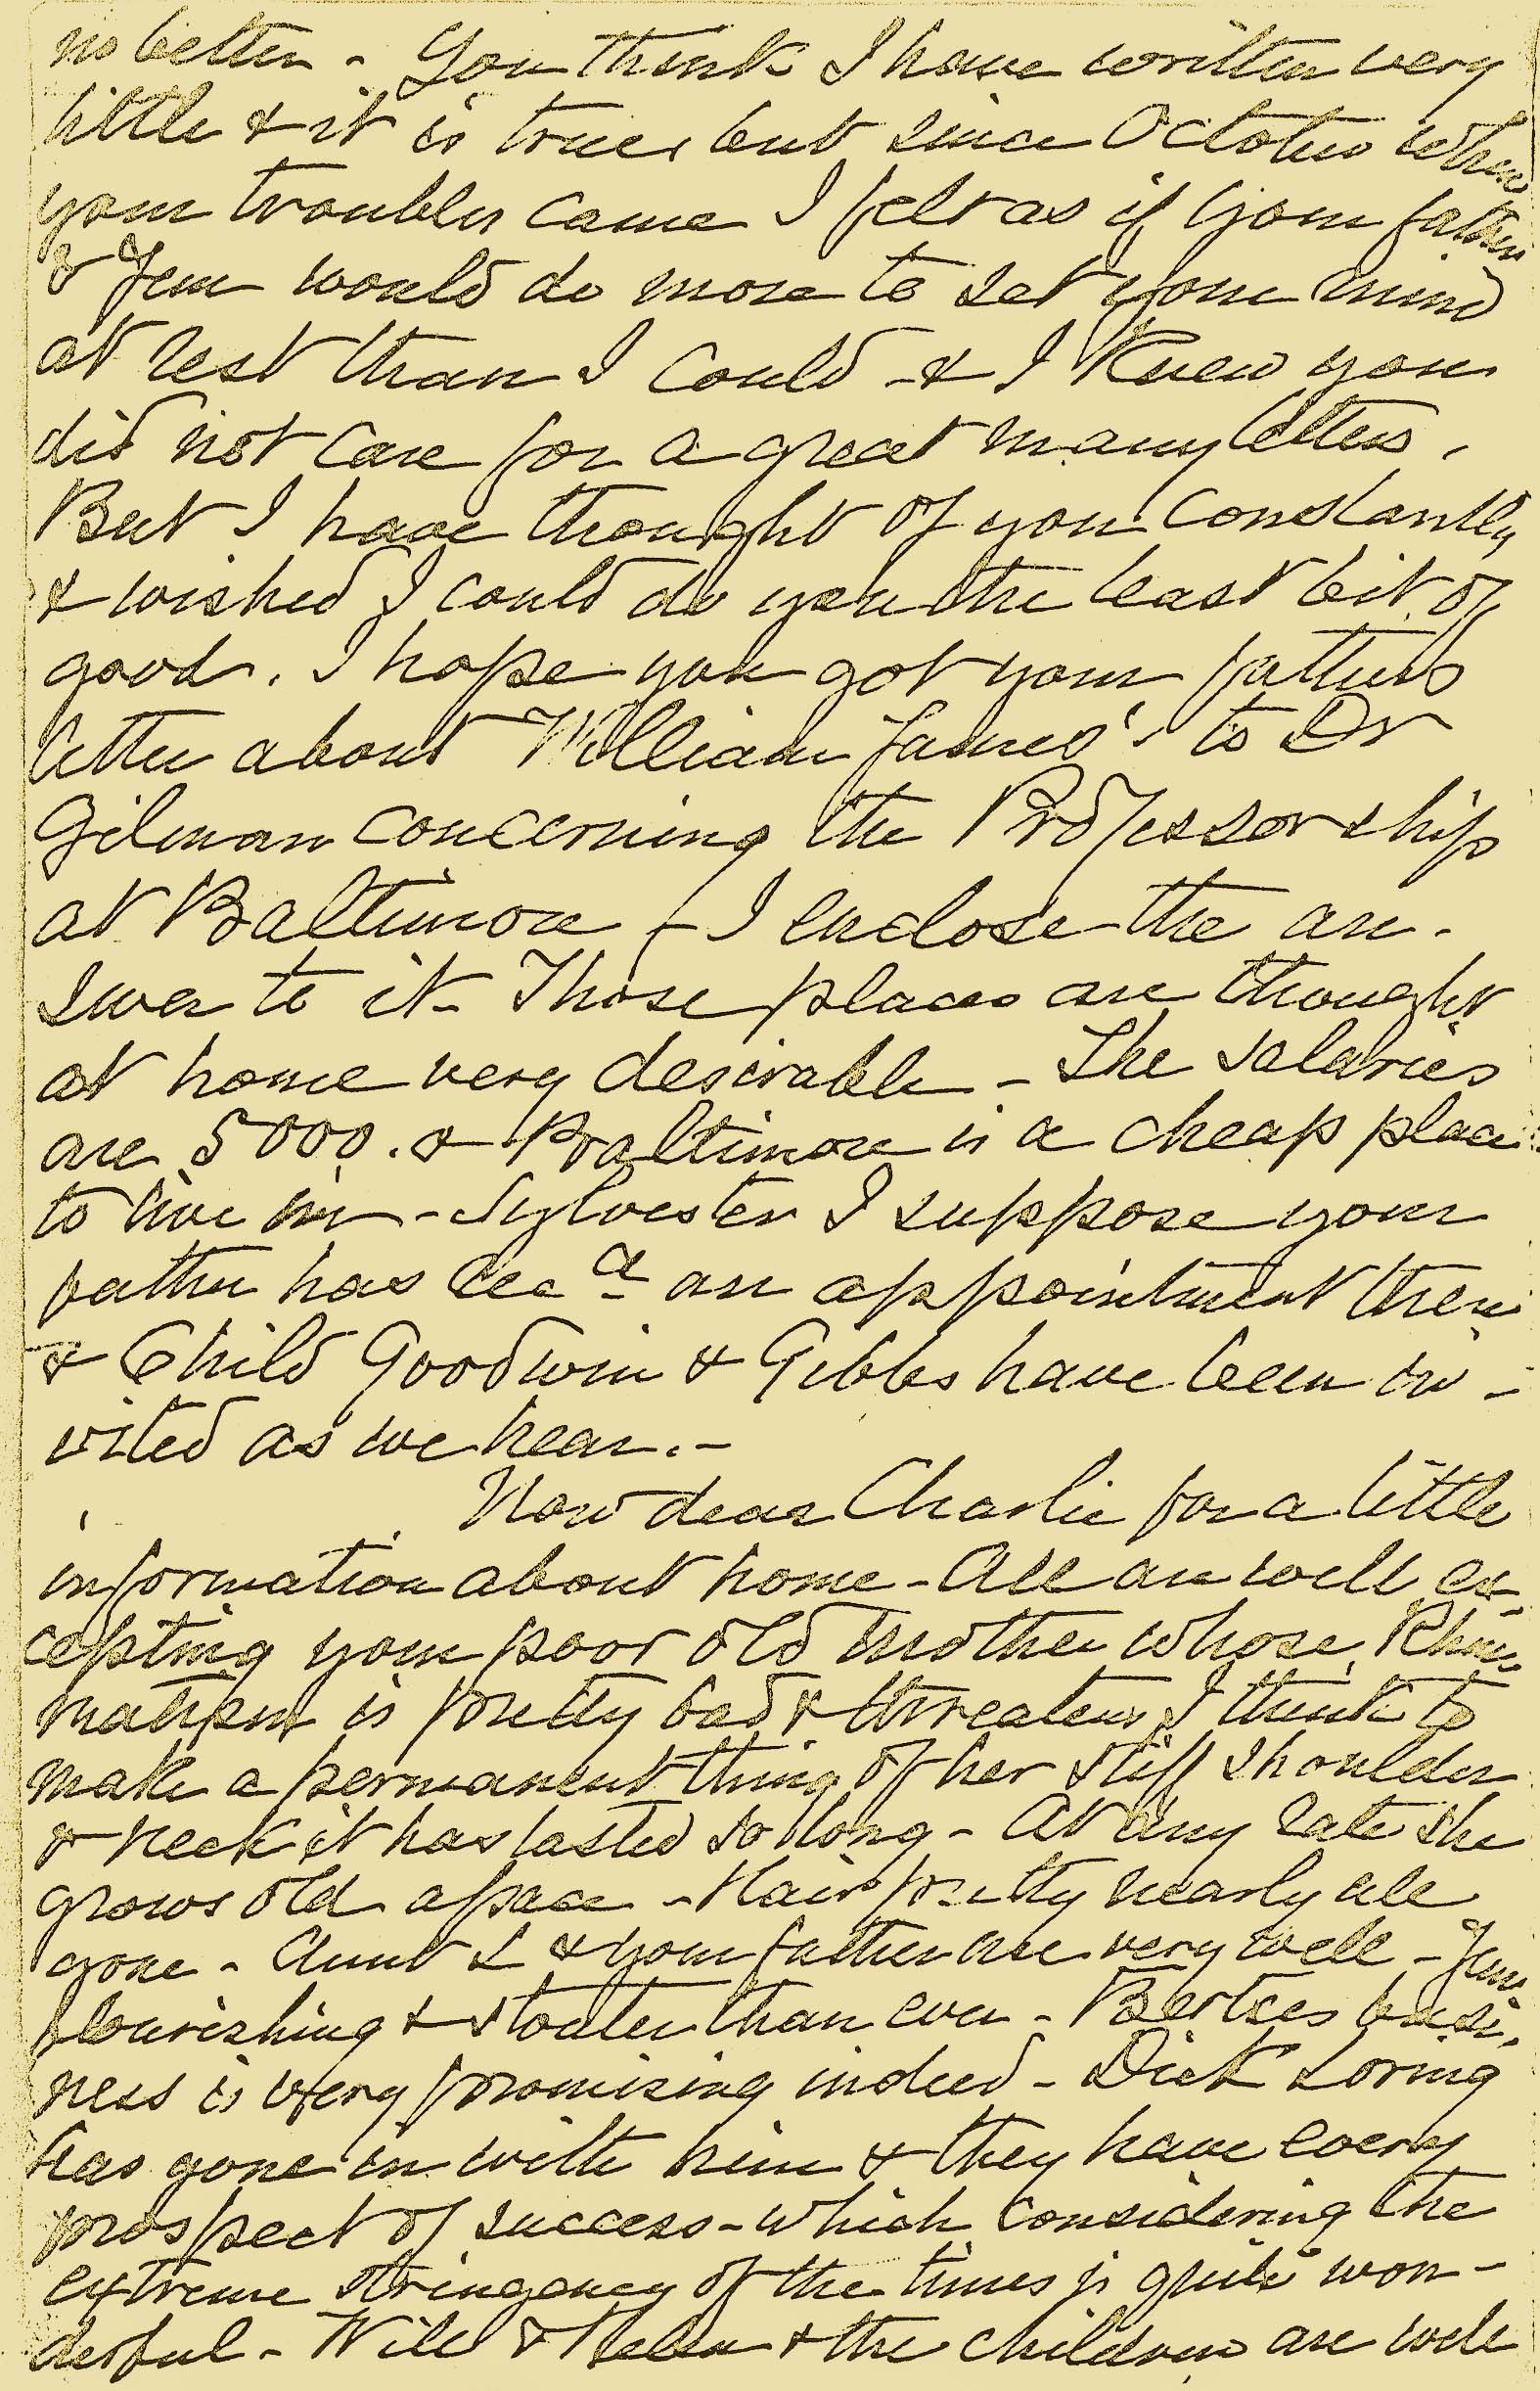 no better - You think I have written very
little & it is true, but since October when
your troubles came I felt as if your father
& Jem would do more to set your mind
at rest than I could - & I knew you
did not care for a great many letters.
But I have thought of you constantly
& wished I could do you the least bit of
good. I hope you got your fathers
letter about William James's to Dr
Gilman concerning the Professorship
at Baltimore - I enclose the an-
swer to it - Those places are thought
at home very desirable - The salaries
are 5000. & Baltimore is a cheap place
to live in - Sylvester I suppose your
father has recd an appointment there
& Child Goodwin & Gibbs have been in-
vited as we hear. -
Now dear Charlie for a little
information about home - All are well ex-
cepting your poor old mother whose Rheu-
matism is pretty bad & threatens I think to
make a permanent thing of her stiff shoulder
& neck it has lasted so long - At any rate she
grows old apace - Hair pretty nearly all
gone - Aunt L & your father are very well - Jem
flourishing & stouter than ever - Berties busi-
ness is very promising indeed - Dick Loring
has gone in with him & they have every
prospect of success - which considering the
extreme stringency of the times is quite won-
derful - Will & Helen & the children are well